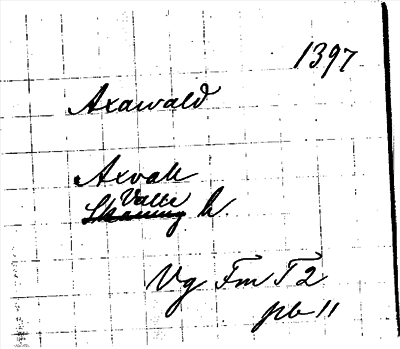 1397
Axawald
Axvall
Valle
Skåning h.
Vg Fm T 2
pb 11